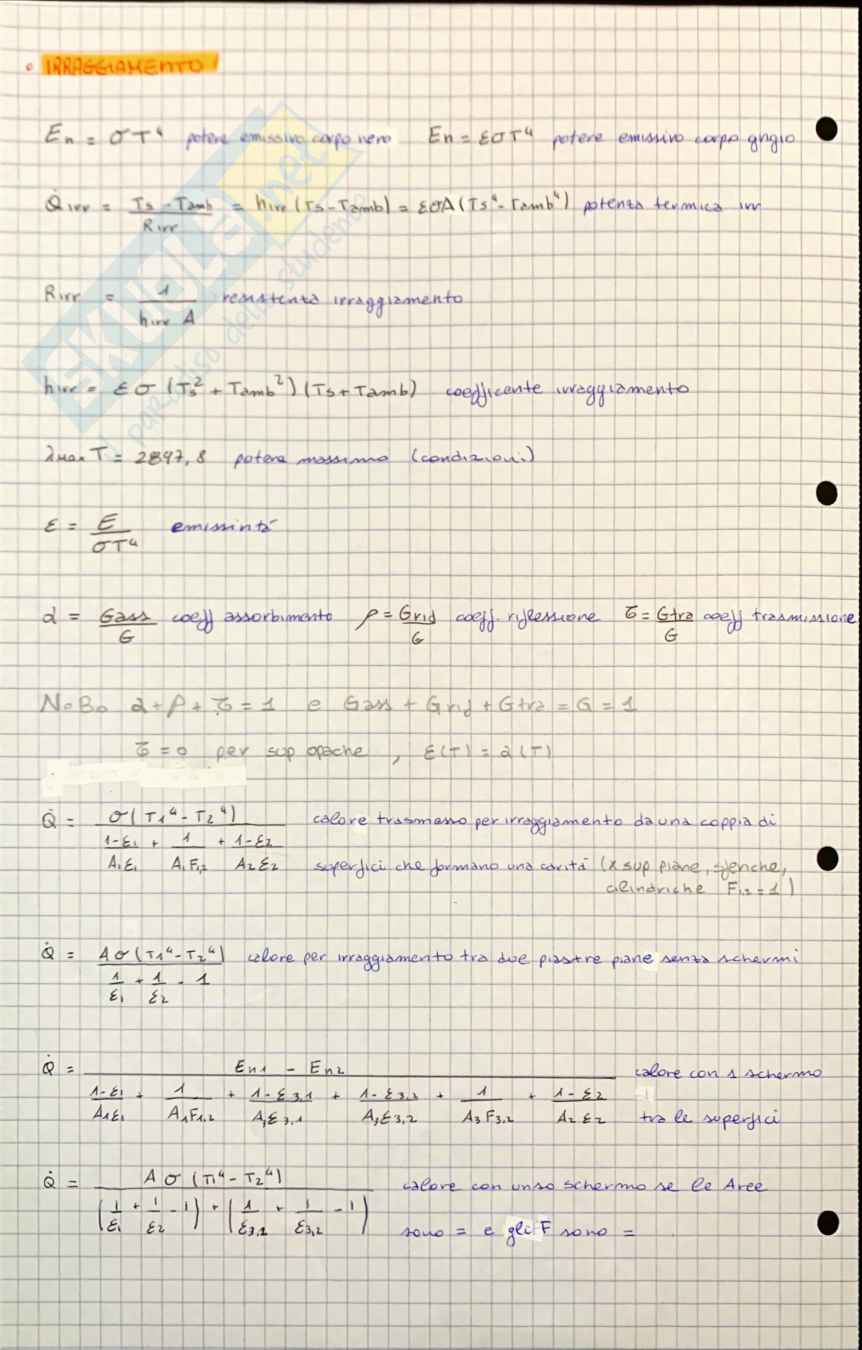 • IRRAGGIAMENTO
En = σT⁴ potere emissivo corpo nero En = εσT⁴ potere emissivo corpo grigio
Q̇irr = (Ts - Tamb)/Rirr = hirr (Ts - Tamb) = εσA (Ts⁴ - Tamb⁴) potenza termica irr
Rirr = 1/(hirr A) resistenza irraggiamento
hirr = εσ (Ts² + Tamb²)(Ts + Tamb) coefficente irraggiamento
λmax T = 2897,8 potere massimo (condizioni)
ε = E/(σT⁴) emissività
α = Gass/G coeff assorbimento ρ = Grid/G coeff. riflessione τ = Gtra/G coeff trasmissione
N.B. α + ρ + τ = 1 e Gass + Grid + Gtra = G = 1
τ = 0 per sup opache, ε(T) = α(T)
Q̇ = σ(T1⁴ - T2⁴) / ((1-ε1)/(A1ε1) + 1/(A1F1,2) + (1-ε2)/(A2ε2)) calore trasmesso per irraggiamento da una coppia di
superfici che formano una cavità (x sup piane, sferiche,
cilindriche F12 = 1)
Q̇ = Aσ(T1⁴ - T2⁴) / (1/ε1 + 1/ε2 - 1) calore per irraggiamento tra due piastre piane senza schermi
Q̇ = (En1 - En2) / ((1-ε1)/(A1ε1) + 1/(A1F1,2) + (1-ε3,1)/(A3ε3,1) + (1-ε3,2)/(A3ε3,2) + 1/(A3F3,2) + (1-ε2)/(A2ε2)) calore con 1 schermo
tra le superfici
Q̇ = Aσ(T1⁴ - T2⁴) / ((1/ε1 + 1/ε2 - 1) + (1/ε3,1 + 1/ε3,2 - 1)) calore con uno schermo se le Aree
sono = e gli F sono =
SKUOLA.net
il paradiso dello studente